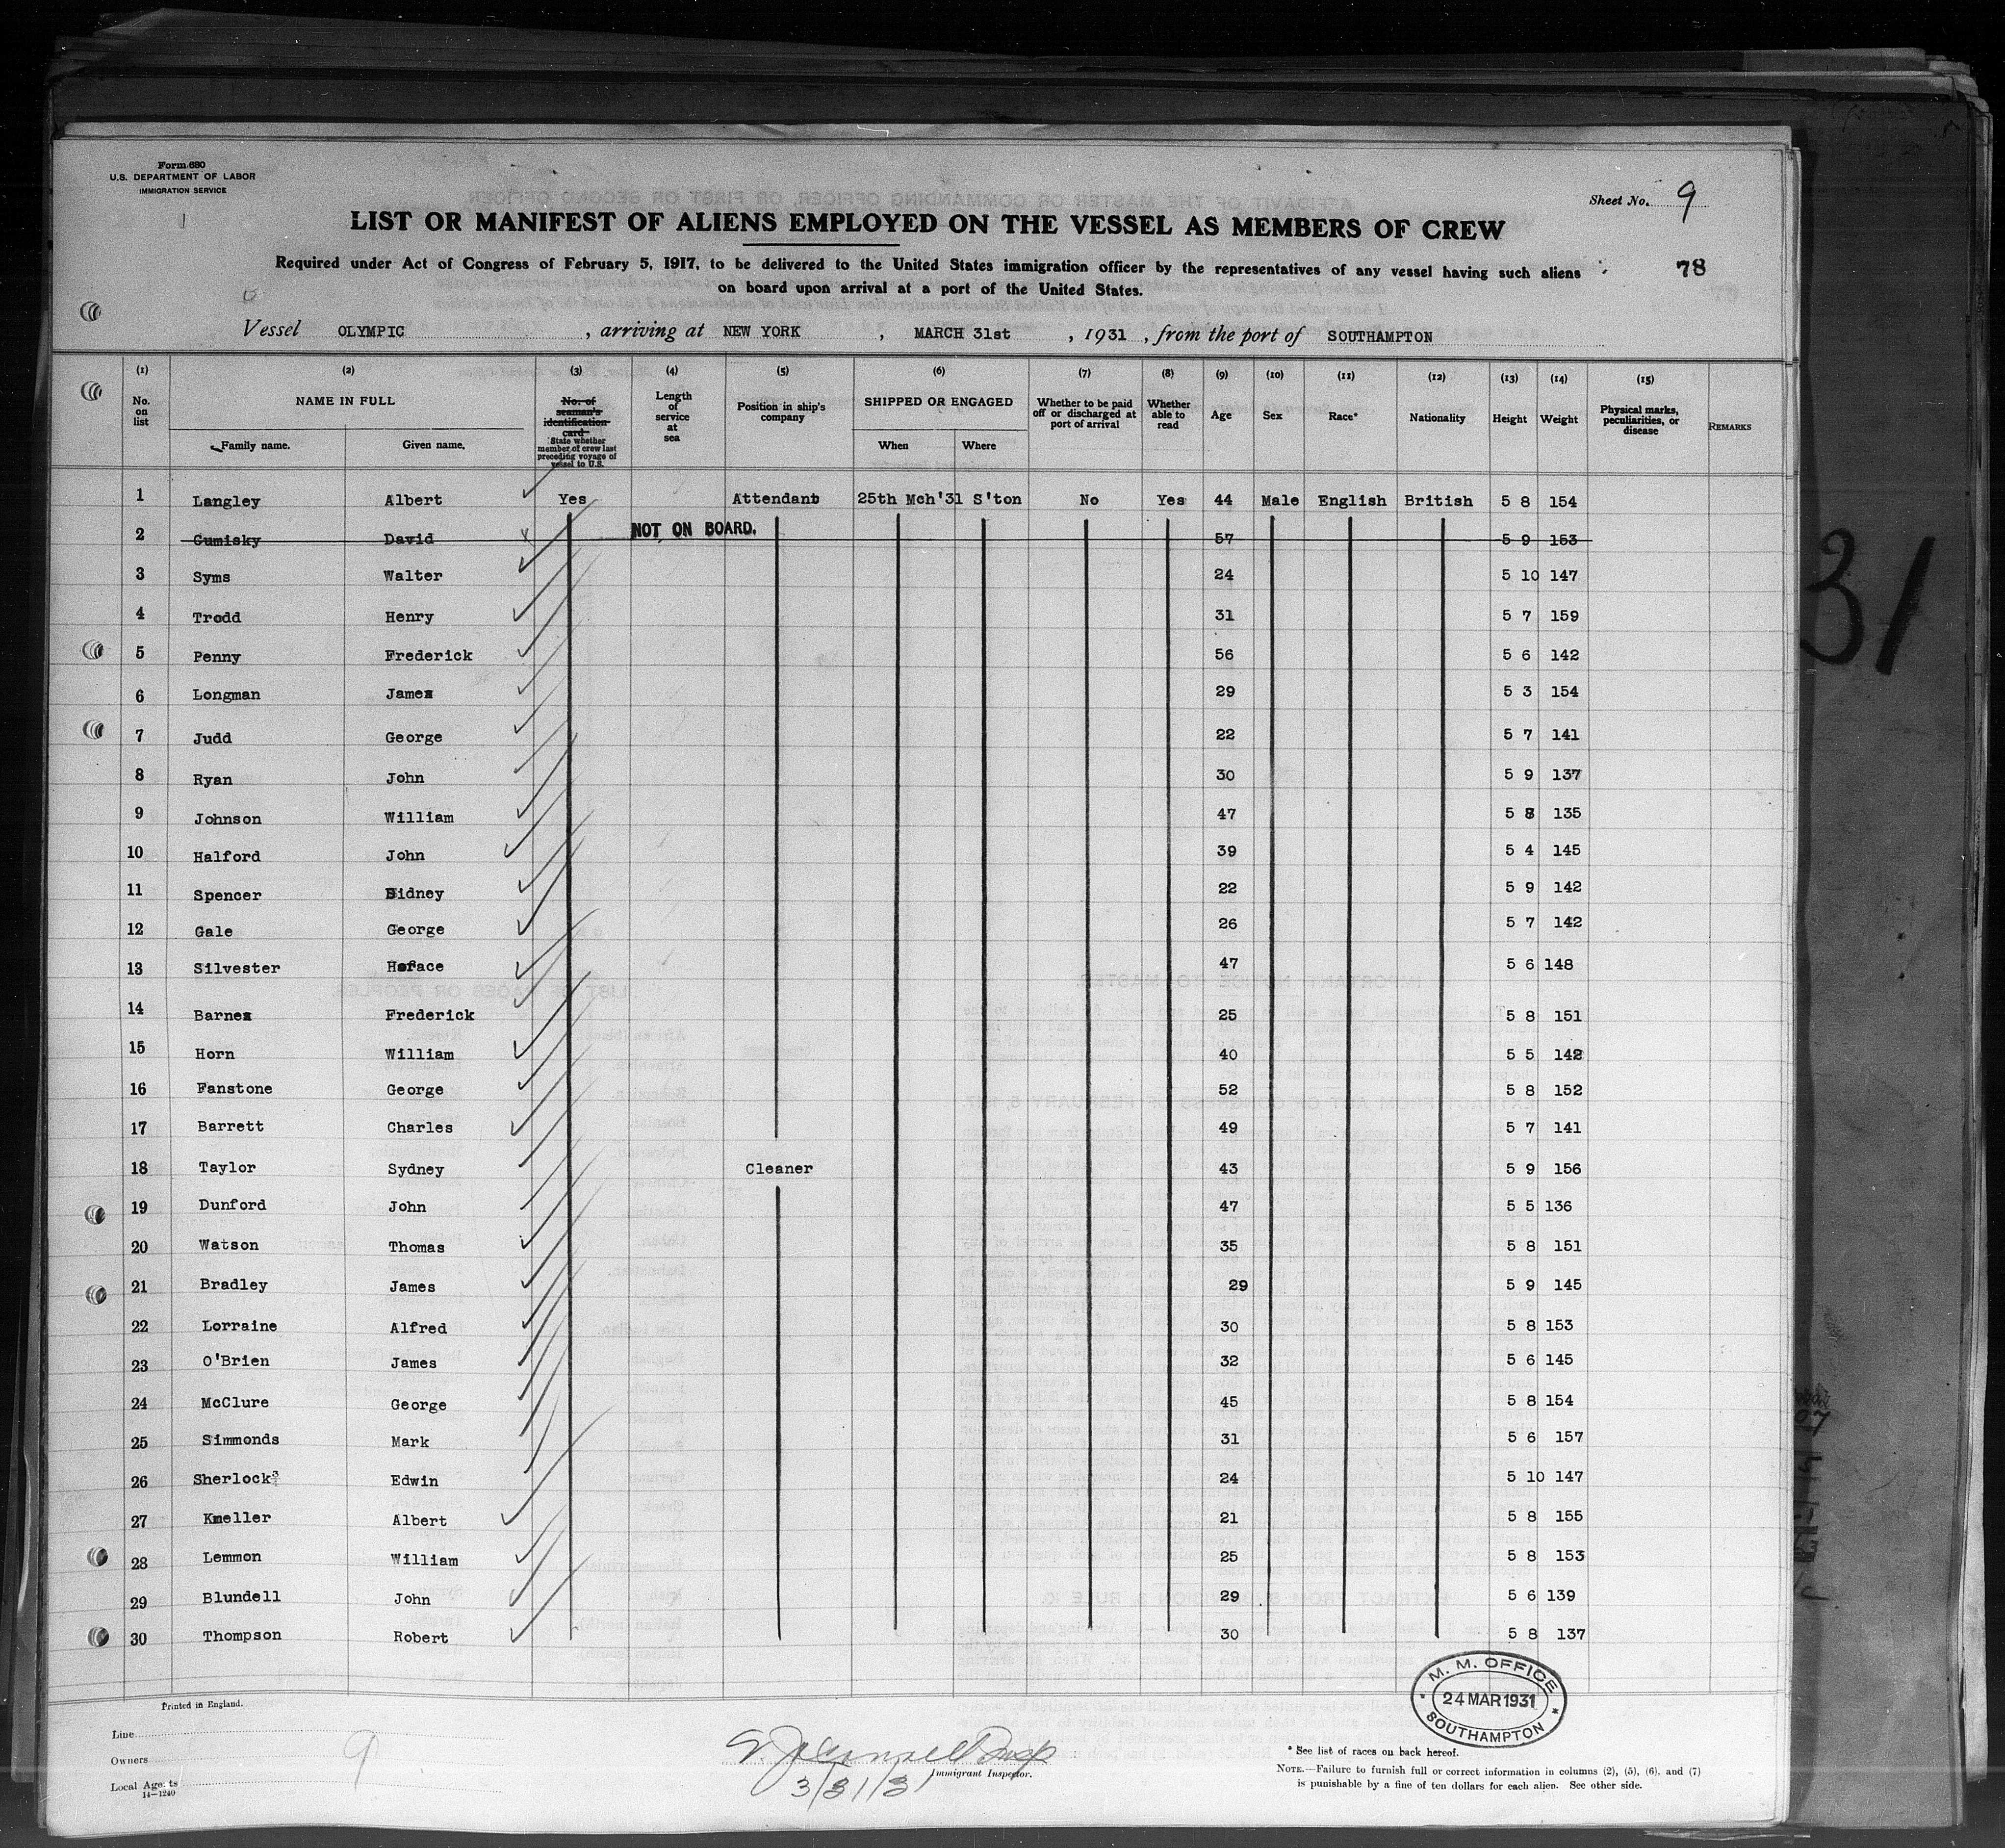 Form 680
U.S. DEPARTMENT OF LABOR
IMMIGRATION SERVICE
Sheet No. 9
LIST OR MANIFEST OF ALIENS EMPLOYED ON THE VESSEL AS MEMBERS OF CREW
Required under Act of Congress of February 5, 1917, to be delivered to the United States immigration officer by the representatives of any vessel having such aliens
on board upon arrival at a port of the United States.
78
Vessel OLYMPIC, arriving at NEW YORK, MARCH 31st, 1931, from the port of SOUTHAMPTON
(1) (2) (3) (4) (5) (6) (7) (8) (9) (10) (11) (12) (13) (14) (15)
No. on list
NAME IN FULL
Family name. Given name.
No. of seaman's identification card
State whether member of crew last preceding voyage of vessel to U.S.
Length of service at sea
Position in ship's company
SHIPPED OR ENGAGED
When Where
Whether to be paid off or discharged at port of arrival
Whether able to read
Age
Sex
Race*
Nationality
Height
Weight
Physical marks, peculiarities, or disease
REMARKS
1 Langley Albert Yes Attendant 25th Mch'31 S'ton No Yes 44 Male English British 5 8 154
2 Cumisky David NOT ON BOARD. 57 5 9 153
3 Syms Walter 24 5 10 147
4 Trodd Henry 31 5 7 159
5 Penny Frederick 56 5 6 142
6 Longman James 29 5 3 154
7 Judd George 22 5 7 141
8 Ryan John 30 5 9 137
9 Johnson William 47 5 8 135
10 Halford John 39 5 4 145
11 Spencer Sidney 22 5 9 142
12 Gale George 26 5 7 142
13 Silvester Horace 47 5 6 148
14 Barnes Frederick 25 5 8 151
15 Horn William 40 5 5 142
16 Fanstone George 52 5 8 152
17 Barrett Charles 49 5 7 141
18 Taylor Sydney Cleaner 43 5 9 156
19 Dunford John 47 5 5 136
20 Watson Thomas 35 5 8 151
21 Bradley James 29 5 9 145
22 Lorraine Alfred 30 5 8 153
23 O'Brien James 32 5 6 145
24 McClure George 45 5 8 154
25 Simmonds Mark 31 5 6 157
26 Sherlock Edwin 24 5 10 147
27 Kneller Albert 21 5 8 155
28 Lemmon William 25 5 8 153
29 Blundell John 29 5 6 139
30 Thompson Robert 30 5 8 137
M. M. OFFICE
24 MAR 1931
SOUTHAMPTON
Printed in England.
Line
Owners
Local Agents
14—1240
9
Immigrant Inspector.
3/31/31
* See list of races on back hereof.
NOTE.—Failure to furnish full or correct information in columns (2), (5), (6), and (7)
is punishable by a fine of ten dollars for each alien. See other side.
31